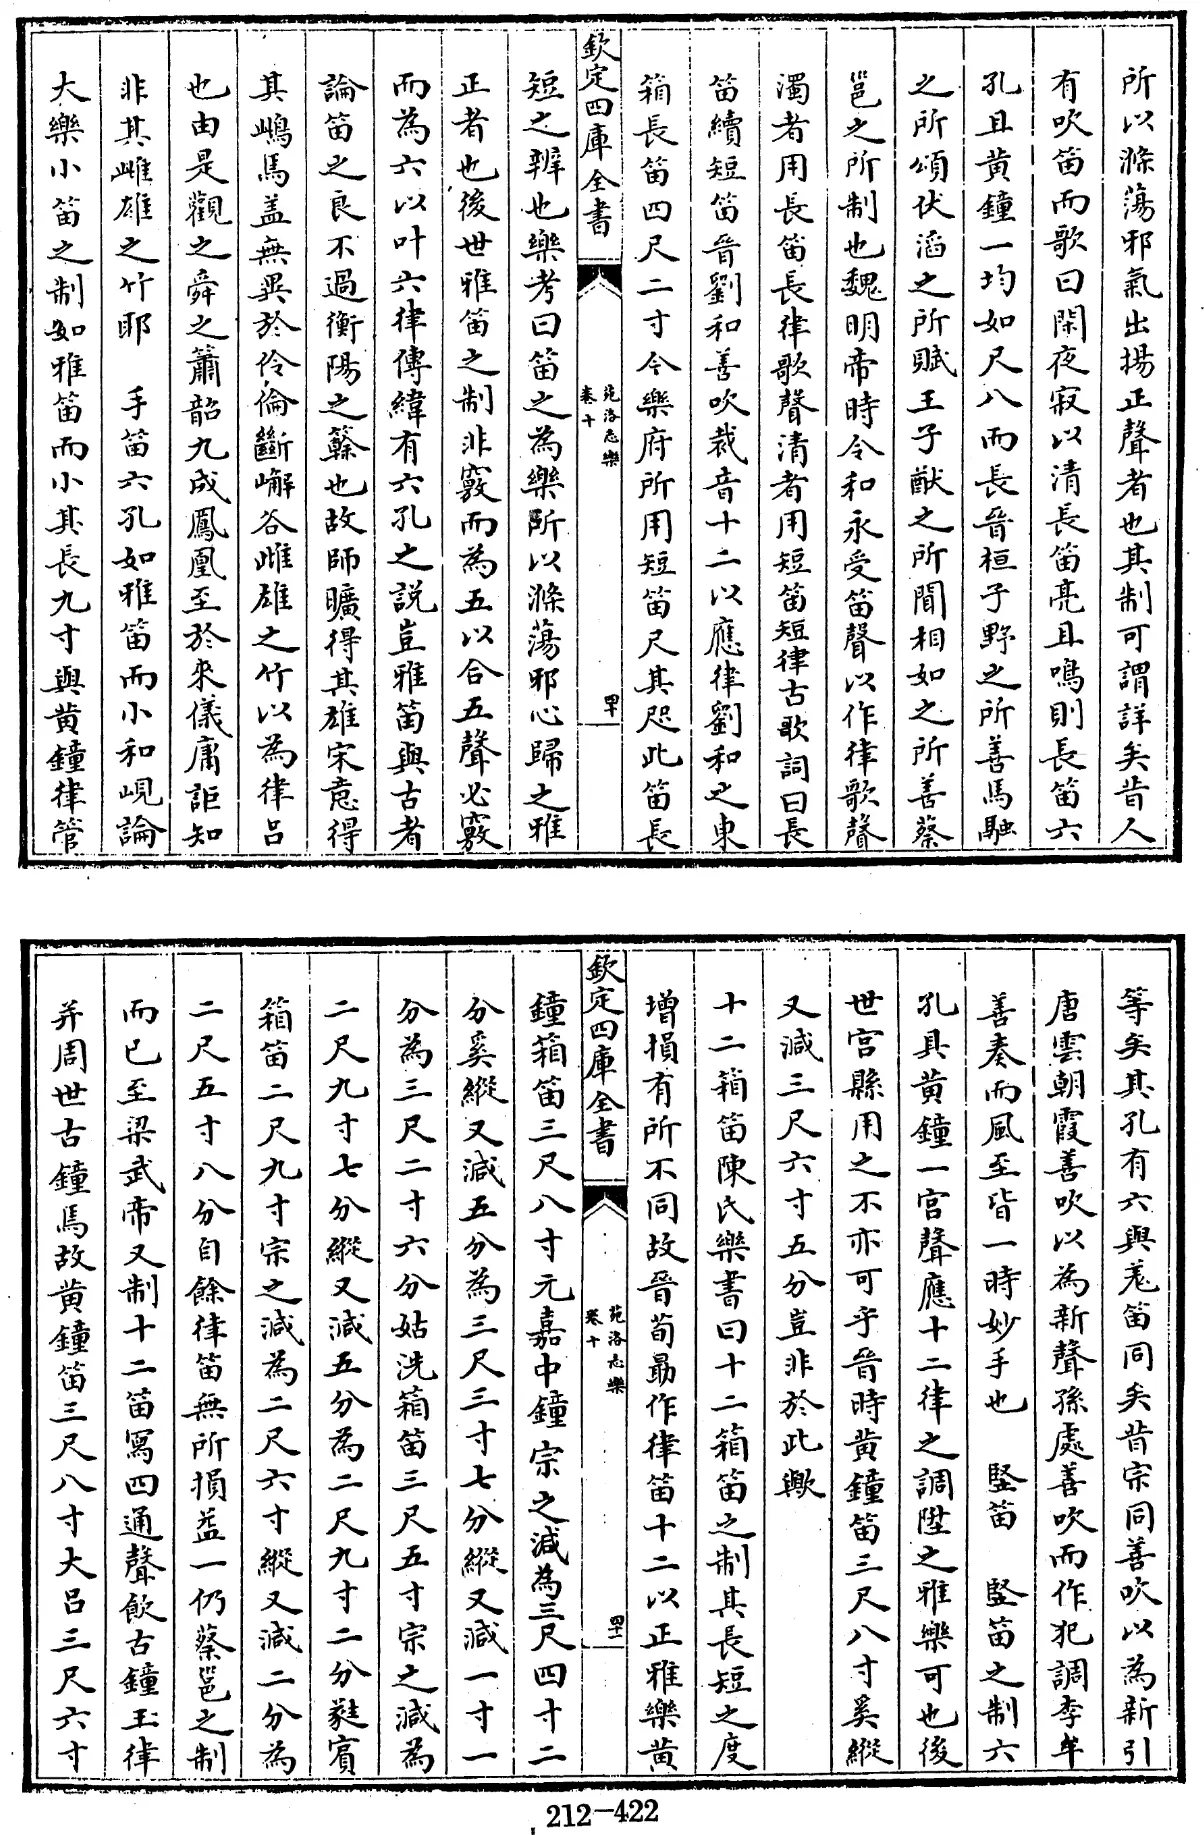 所以滌蕩邪氣出揚正聲者也其制可謂詳矣昔人
有吹笛而歌曰閑夜寂以清長笛亮且鳴則長笛六
孔且黄鐘一均如尺八而長晉桓子野之所善馬融
之所頌伏滔之所賦王子猷之所聞相如之所善蔡
邕之所制也魏明帝時令和永受笛聲以作律歌聲
濁者用長笛長律歌聲清者用短笛短律古歌詞曰長
笛續短笛晉劉和善吹裁音十二以應律劉和之東
箱長笛四尺二寸今樂府所用短笛尺其咫此笛長
欽定四庫全書
苑洛志樂
卷十
四十
短之辨也樂考曰笛之為樂所以滌蕩邪心歸之雅
正者也後世雅笛之制非竅而為五以合五聲必竅
而為六以叶六律傳緯有六孔之説豈雅笛與古者
論笛之良不過衡陽之簳也故師曠得其雄宋意得
其㠀馬盖無異於伶倫斷嶰谷雌雄之竹以為律吕
也由是觀之舜之簫韶九成鳳凰至於來儀庸詎知
非其雌雄之竹耶　手笛六孔如雅笛而小和峴論
大樂小笛之制如雅笛而小其長九寸與黄鐘律管
等矣其孔有六與羌笛同矣昔宗同善吹以為新引
唐雲朝霞善吹以為新聲孫處善吹而作犯調李牟
善奏而風至皆一時妙手也　竪笛　竪笛之制六
孔具黄鐘一宫聲應十二律之調陞之雅樂可也後
世宫縣用之不亦可乎晉時黄鐘笛三尺八寸奚縱
又減三尺六寸五分豈非於此歟
十二箱笛陳氏樂書曰十二箱笛之制其長短之度
增損有所不同故晉荀勗作律笛十二以正雅樂黄
欽定四庫全書
苑洛志樂
卷十
四十一
鐘箱笛三尺八寸元嘉中鐘宗之減為三尺四寸二
分奚縱又減五分為三尺三寸七分縱又減一寸一
分為三尺二寸六分姑洗箱笛三尺五寸宗之減為
二尺九寸七分縱又減五分為二尺九寸二分蕤賓
箱笛二尺九寸宗之減為二尺六寸縱又減二分為
二尺五寸八分自餘律笛無所損益一仍蔡邕之制
而已至梁武帝又制十二笛寫四通聲飲古鐘玉律
并周世古鐘馬故黄鐘笛三尺八寸大吕三尺六寸
212-422